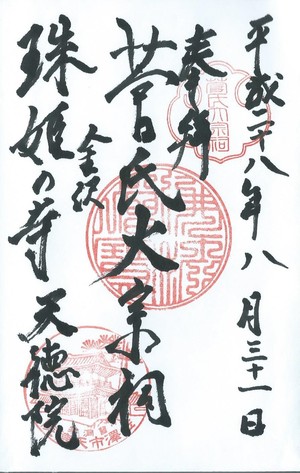 平成二十八年八月三十一日
奉拝
菅氏大宗祠
金沢
珠姫の寺 天徳院